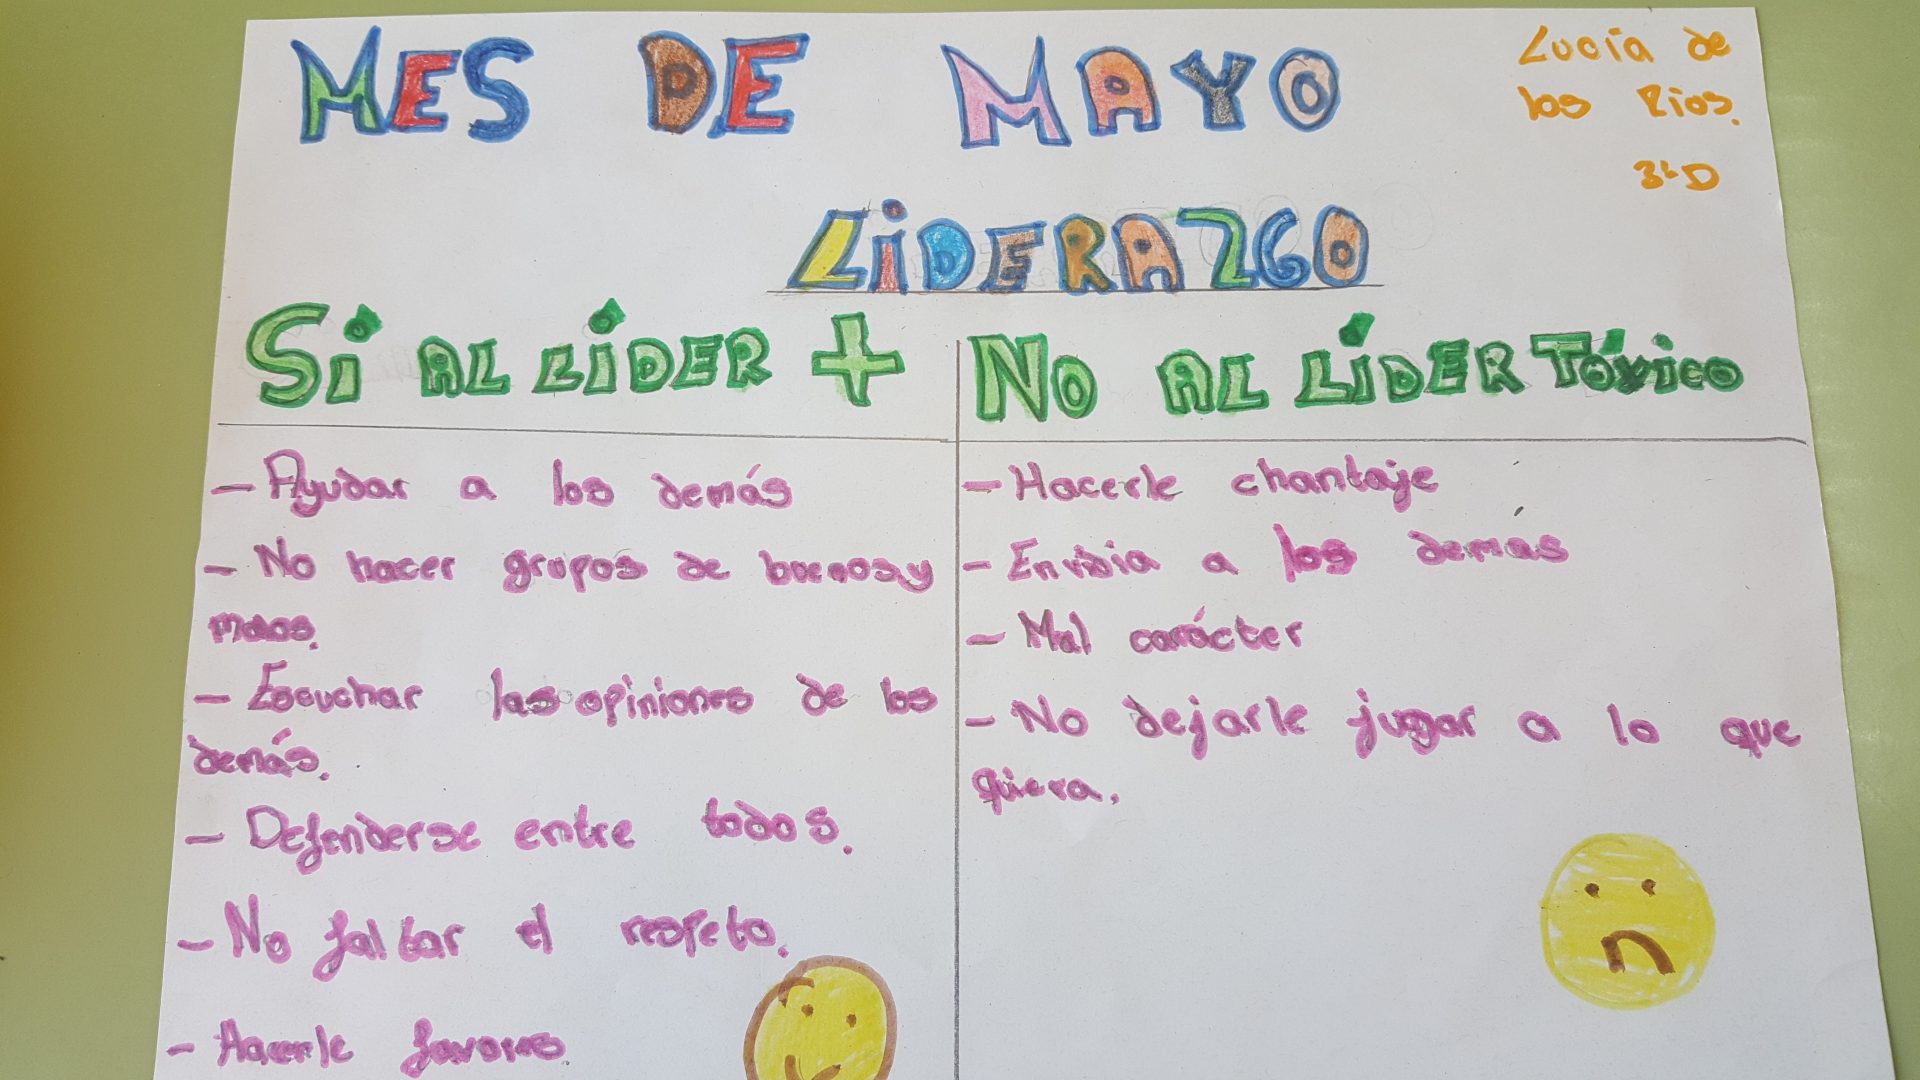 MES DE MAYO
Lucía de
los Rios.
3ºD
LIDERAZGO
SÍ AL LÍDER +
- Ayudar a los demás
- No hacer grupos de buenos y
malos.
- Escuchar las opiniones de los
demás.
- Defenderse entre todos.
- No faltar el respeto.
- Hacerle favores
NO AL LÍDER TÓXICO
- Hacerle chantaje
- Envidia a los demas
- Mal carácter
- No dejarle jugar a lo que
quiera.